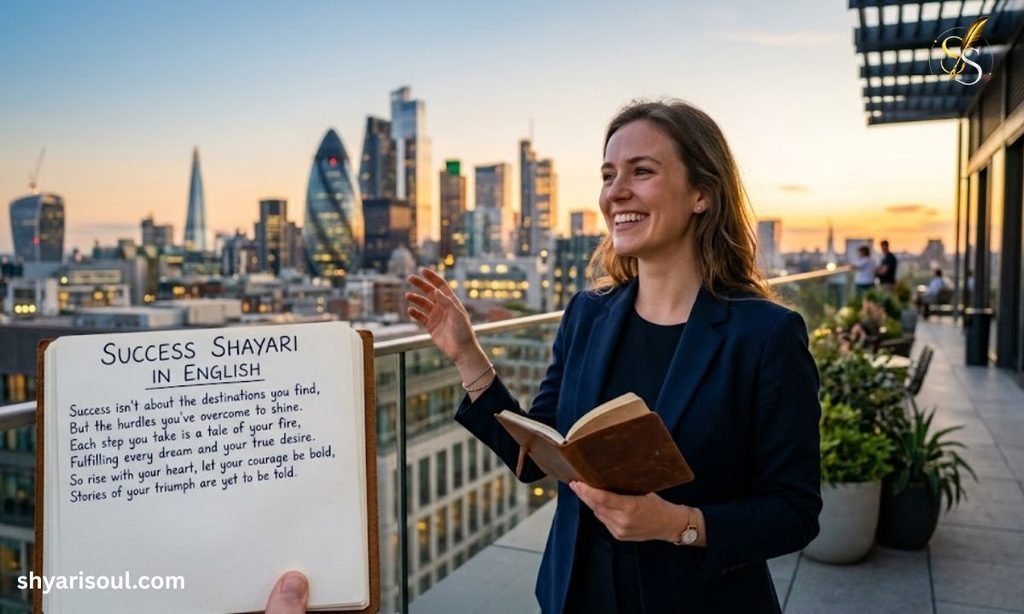 SUCCESS SHAYARI
IN ENGLISH
Success isn't about the destinations you find,
But the hurdles you've overcome to shine.
Each step you take is a tale of your fire,
Fulfilling every dream and your true desire.
So rise with your heart, let your courage be bold,
Stories of your triumph are yet to be told.
shyarisoul.com
SS